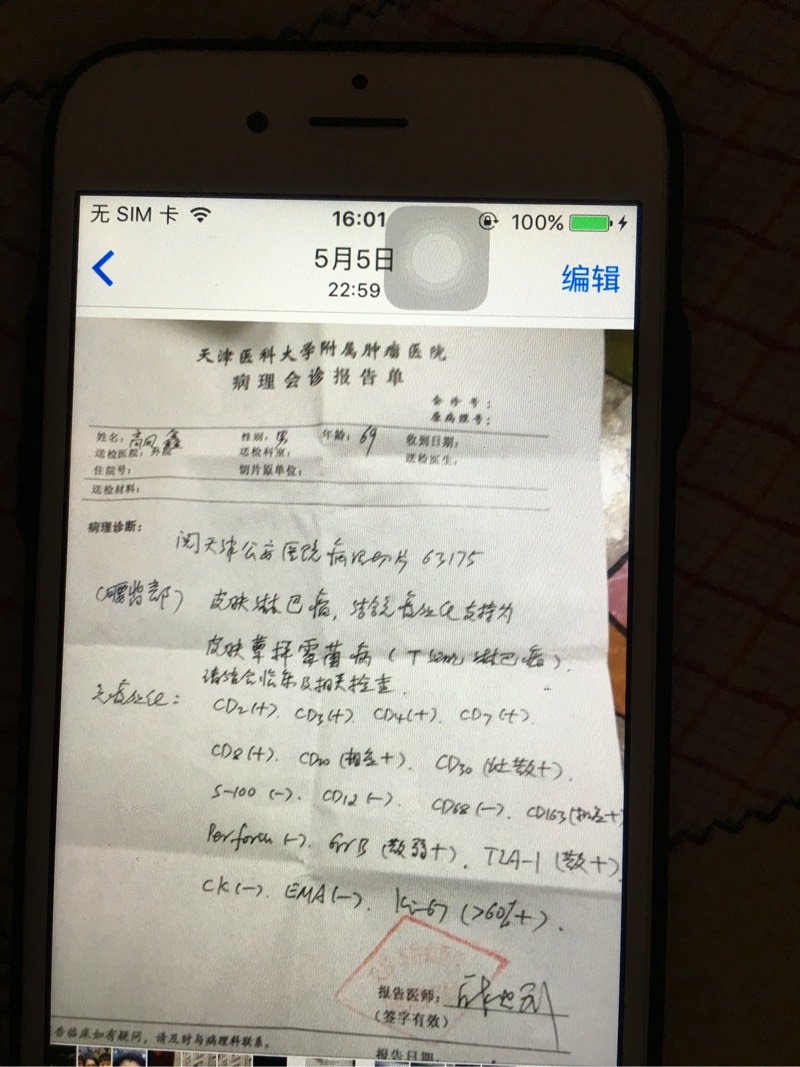 无 SIM 卡 16:01 100%
5月5日
22:59
编辑
天津医科大学附属肿瘤医院
病理会诊报告单
会诊号：
原病理号：
姓名：高凤鑫 性别：男 年龄：69 收到日期：
送检医院：外院 送检科室： 送检医生：
住院号： 切片原单位：
送检材料：
病理诊断：
阅天津公安医院病理切片 63175
（腰背部） 皮肤淋巴瘤，结合免疫组化支持为
皮肤蕈样霉菌病（T cell 淋巴瘤）.
请结合临床及相关检查.
免疫组化：
CD2(+). CD3(+) CD4(+). CD7(+).
CD8(+). CD20 (灶性+). CD30 (灶散+).
S-100 (-). CD12 (-). CD68 (-). CD163
Perforin (-). GrB (散弱+). TIA-1 (散+).
CK(-). EMA(-). Ki-67 (>60%+).
报告医师：
（签字有效）
告临床如有疑问，请及时与病理科联系。
报告日期